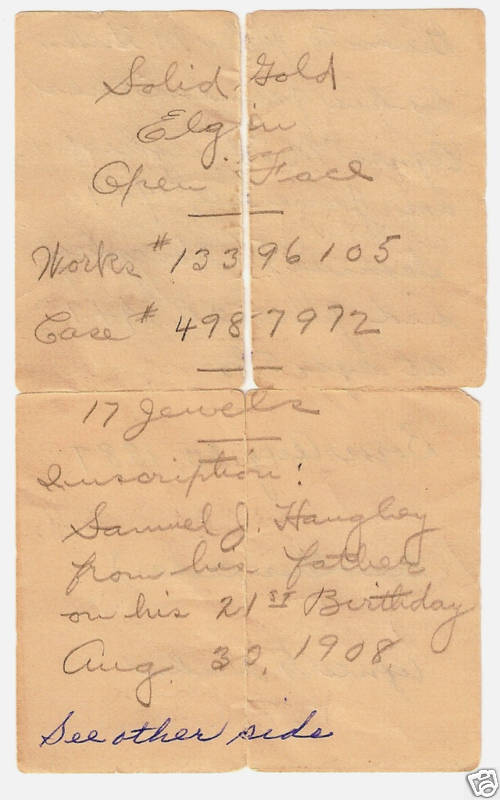 Solid Gold
Elgin
Open Face
Works # 13396105
Case # 4987972
17 Jewels
Inscription:
Samuel J. Haughey
from his father
on his 21st Birthday
Aug. 30, 1908.
See other side